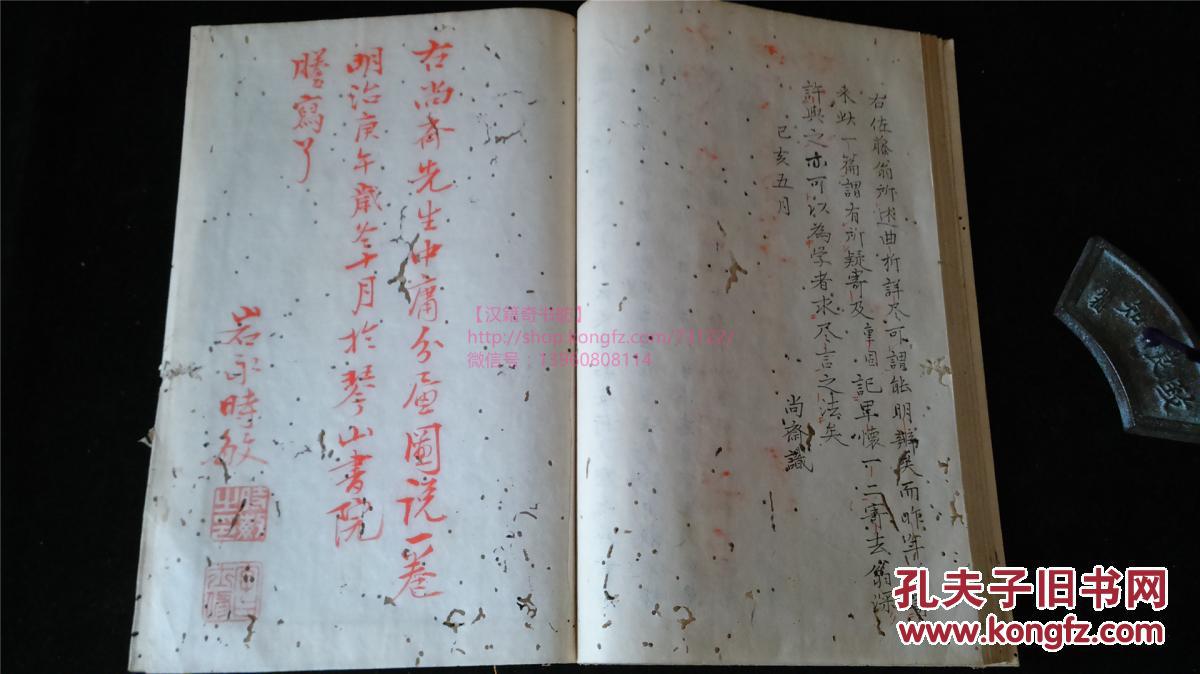 右佐藤翁所述曲折詳尽可謂能明辨矣而昨
来此一篇謂有所疑寄及車固記畢懐一二寄去翁深
許與之亦可以為学者求尽言之法矣
己亥五月
尚齋識
右尚斉先生中庸分画圖説一巻
明治庚午歳冬十月於琴山書院
謄寫了
岩永時敏
【汉籍奇书斋】
http://shop.kongfz.com/73122/
微信号：13960808114
孔夫子旧书网
www.kongfz.com